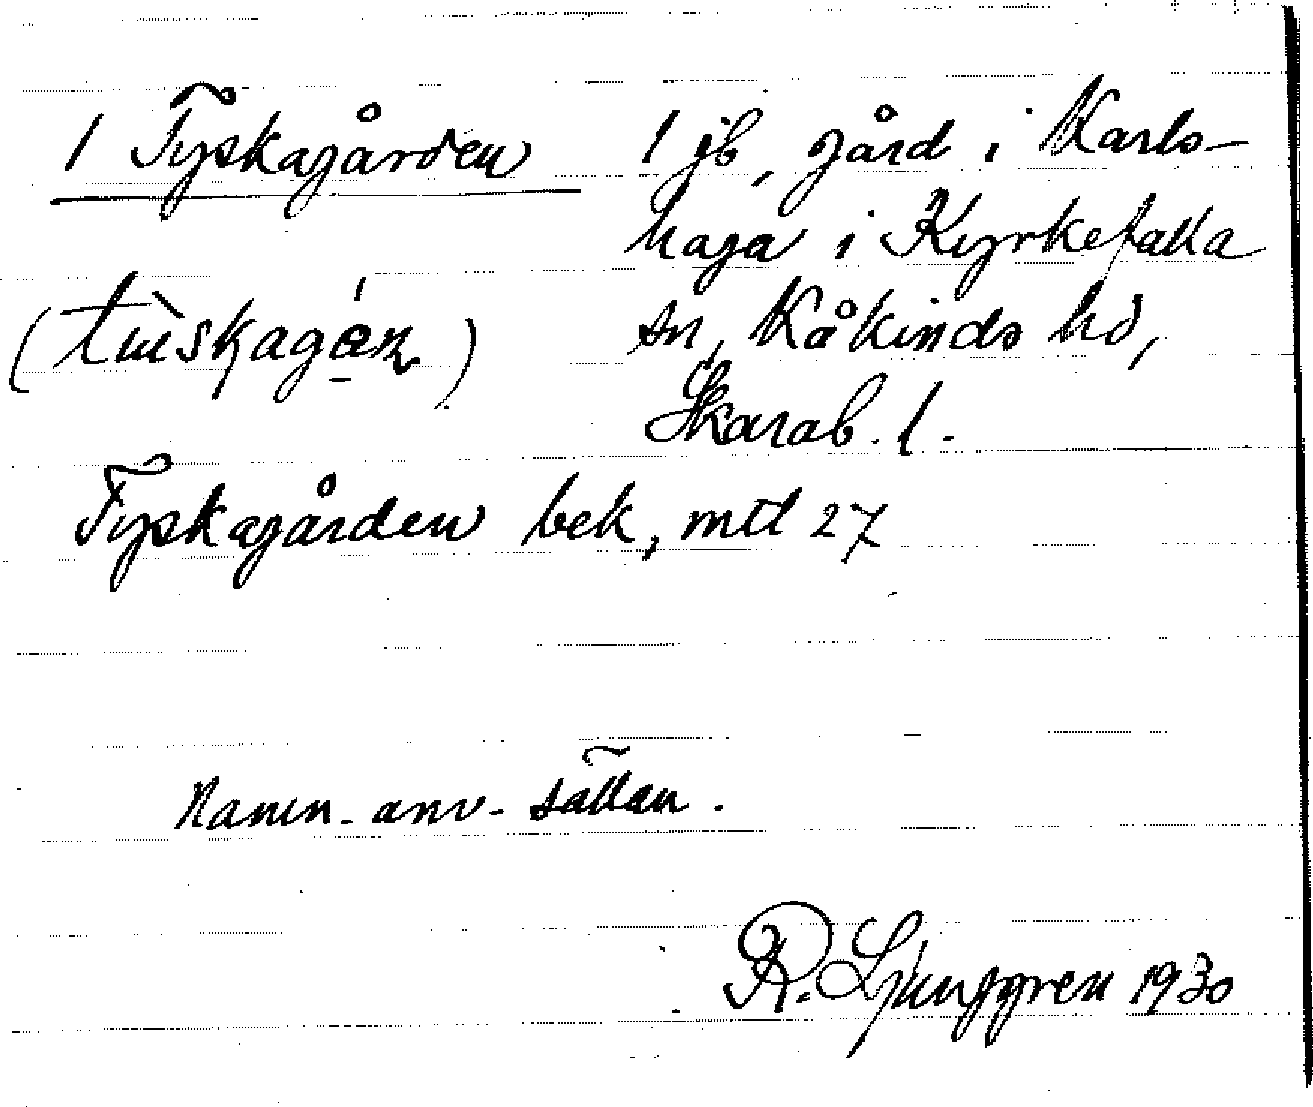 / Tyskagården
/ jb, gård i Karls-
haga i Kyrkefalla
sn, Kåkinds hd,
Skarab. l.
Tyskagården bek, mtl 27
Namn. anv. sällan.
R. Ljunggren 1930